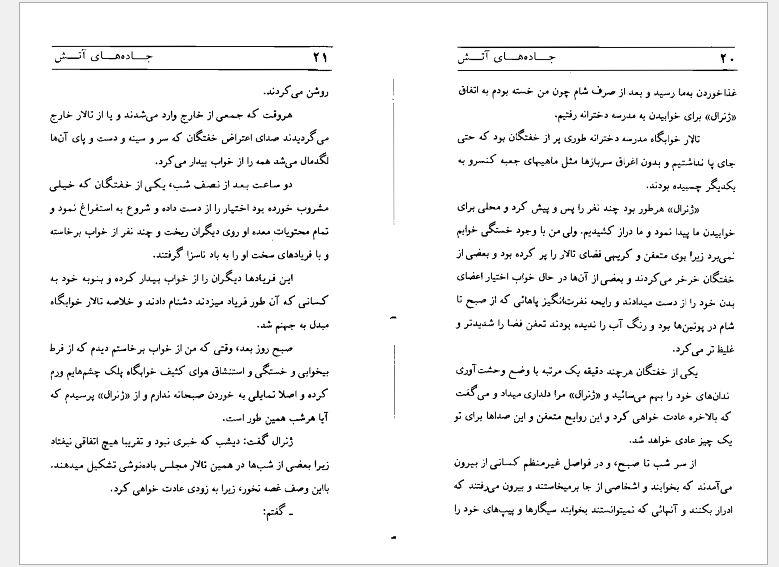 ۲۰ جـــاده‌هـــای آتـــش
غذاخوردن به‌ما رسید و بعد از صرف شام چون من خسته بودم به اتفاق
«ژنرال» برای خوابیدن به مدرسه دخترانه رفتیم.
تالار خوابگاه مدرسه دخترانه طوری پر از خفتگان بود که حتی
جای پا نداشتیم و بدون اغراق سربازها مثل ماهیهای جعبه کنسرو به
یکدیگر چسبیده بودند.
«ژنرال» هرطور بود چند نفر را پس و پیش کرد و محلی برای
خوابیدن ما پیدا نمود و ما دراز کشیدیم. ولی من با وجود خستگی خوابم
نمی‌برد زیرا بوی متعفن و کریهی فضای تالار را پر کرده بود و بعضی از
خفتگان خرخر می‌کردند و بعضی از آن‌ها در حال خواب اختیار اعضای
بدن خود را از دست میدادند و رایحه نفرت‌انگیز پاهائی که از صبح تا
شام در پوتین‌ها بود و رنگ آب را ندیده بودند تعفن فضا را شدیدتر و
غلیظ تر می‌کرد.
یکی از خفتگان هرچند دقیقه یک مرتبه با وضع وحشت‌آوری
دندان‌های خود را بهم می‌سائید و «ژنرال» مرا دلداری میداد و می‌گفت
که بالاخره عادت خواهی کرد و این روایح متعفن و این صداها برای تو
یک چیز عادی خواهد شد.
از سر شب تا صبح، و در فواصل غیرمنظم کسانی از بیرون
می‌آمدند که بخوابند و اشخاصی از جا برمیخاستند و بیرون می‌رفتند که
ادرار بکنند و آنهائی که نمیتوانستند بخوابند سیگارها و پیپ‌های خود را
۲۱ جـــاده‌هـــای آتـــش
روشن می‌کردند.
هروقت که جمعی از خارج وارد می‌شدند و یا از تالار خارج
می‌گردیدند صدای اعتراض خفتگان که سر و سینه و دست و پای آن‌ها
لگدمال می‌شد همه را از خواب بیدار می‌کرد.
دو ساعت بعد از نصف شب، یکی از خفتگان که خیلی
مشروب خورده بود اختیار را از دست داده و شروع به استفراغ نمود و
تمام محتویات معده او روی دیگران ریخت و چند نفر از خواب برخاسته
و با فریادهای سخت او را به باد ناسزا گرفتند.
این فریادها دیگران را از خواب بیدار کرده و بنوبه خود به
کسانی که آن طور فریاد میزدند دشنام دادند و خلاصه تالار خوابگاه
مبدل به جهنم شد.
صبح روز بعد، وقتی که من از خواب برخاستم دیدم که از فرط
بیخوابی و خستگی و استنشاق هوای کثیف خوابگاه پلک چشم‌هایم ورم
کرده و اصلا تمایلی به خوردن صبحانه ندارم و از «ژنرال» پرسیدم که
آیا هرشب همین طور است.
ژنرال گفت: دیشب که خبری نبود و تقریبا هیچ اتفاقی نیفتاد
زیرا بعضی از شب‌ها در همین تالار مجلس باده‌نوشی تشکیل میدهند.
بااین وصف غصه نخور، زیرا به زودی عادت خواهی کرد.
ـ گفتم: